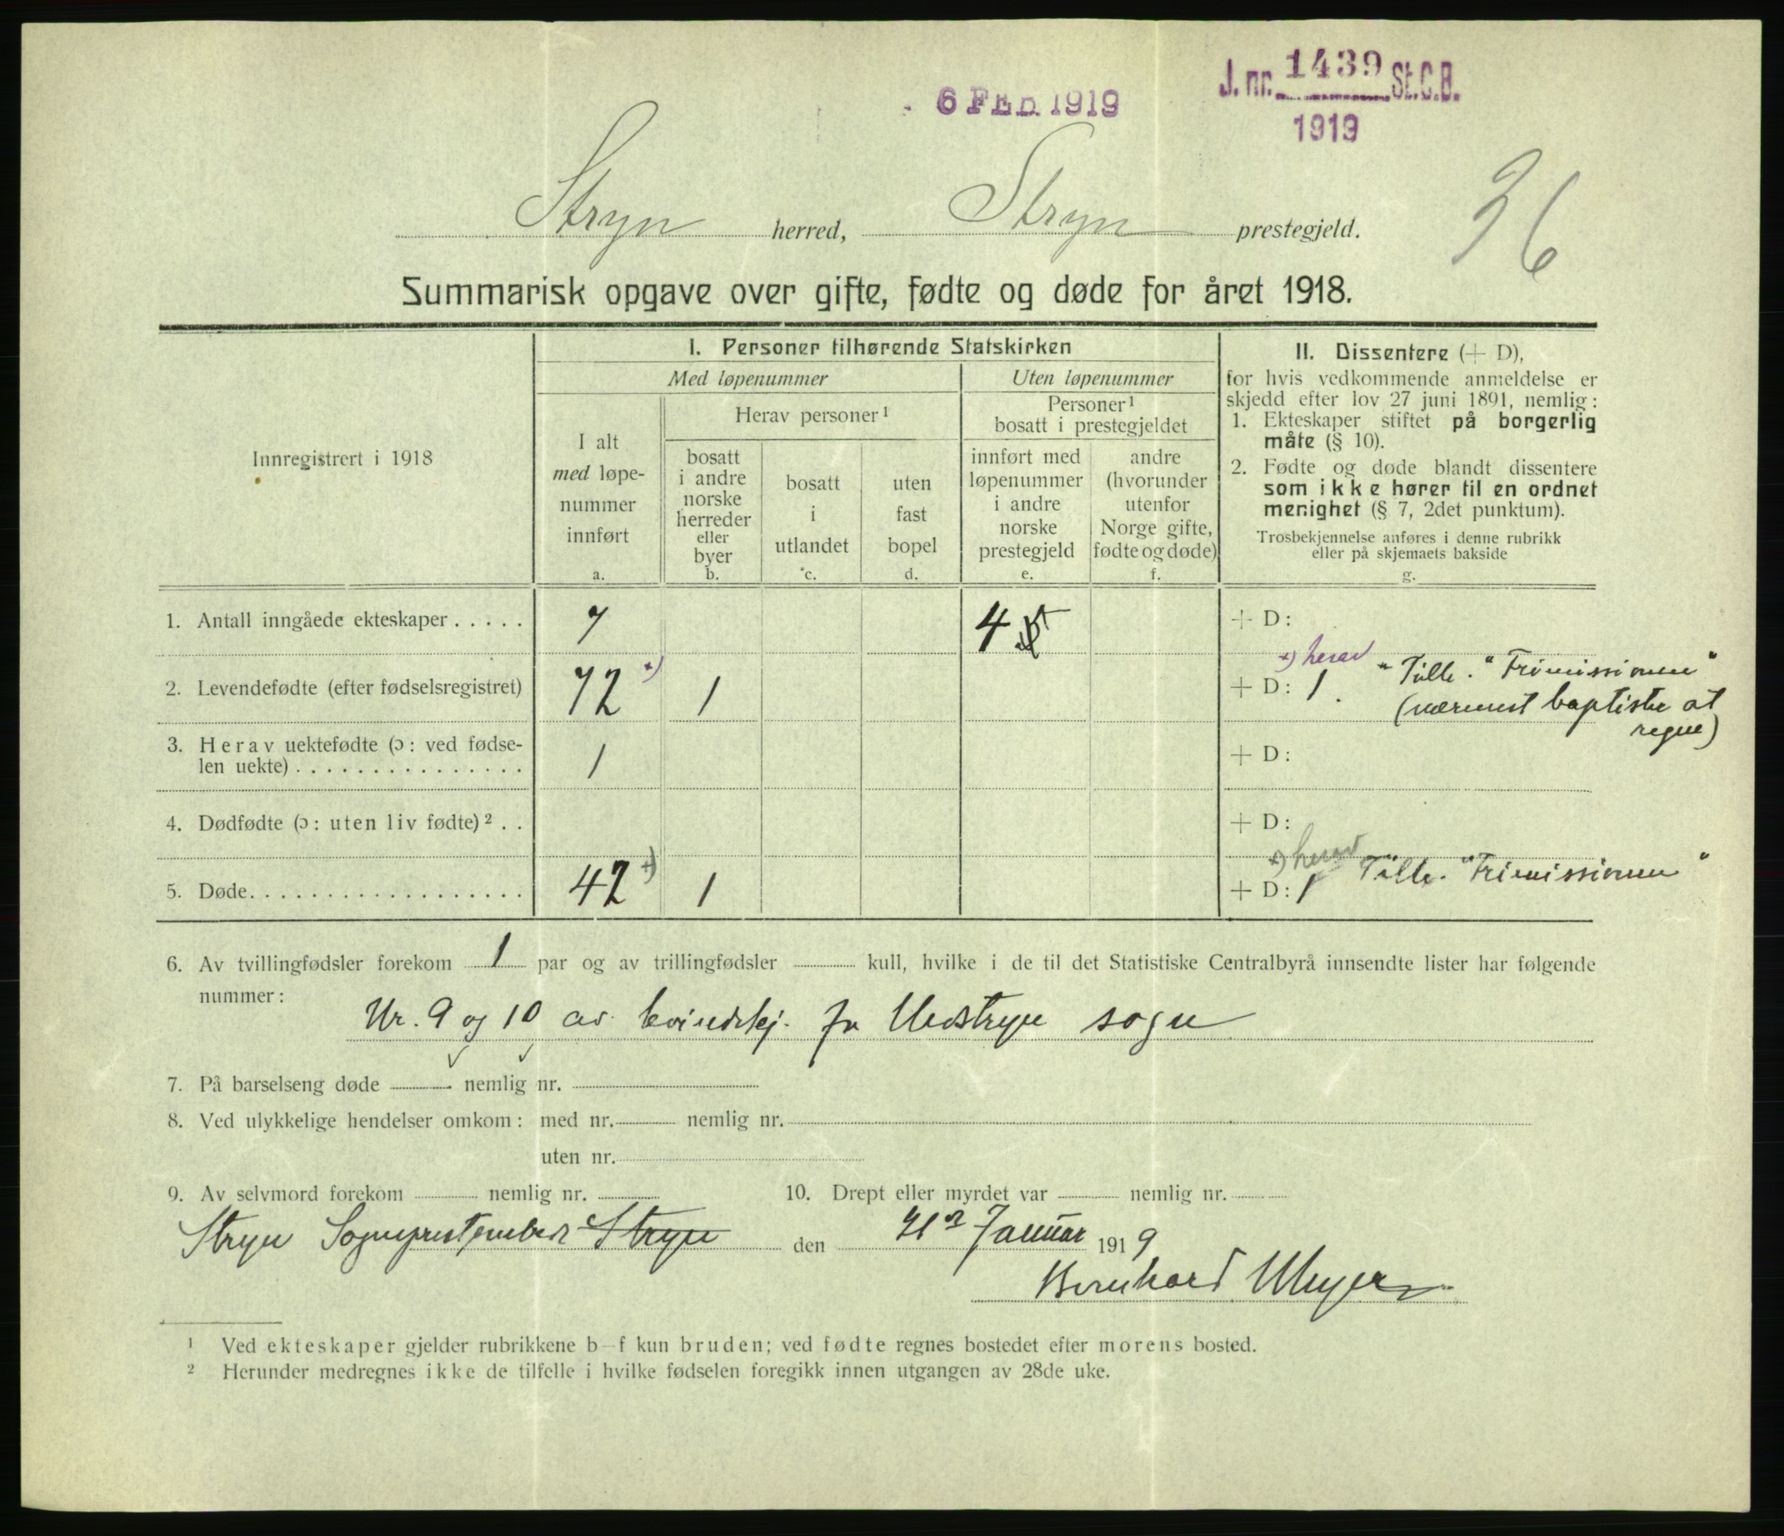 6 FEB 1919
J. nr. 1439 St. C. B.
1919
36
Stryn herred, Stryn prestegjeld.
Summarisk opgave over gifte, fødte og døde for året 1918.
Innregistrert i 1918
I. Personer tilhørende Statskirken
Med løpenummer
Uten løpenummer
I alt
med løpe-
nummer
innført
a.
Herav personer 1
bosatt
i andre
norske
herreder
eller
byer
b.
bosatt
i
utlandet
c.
uten
fast
bopel
d.
Personer 1
bosatt i prestegjeldet
innført med
løpenummer
i andre
norske
prestegjeld
e.
andre
(hvorunder
utenfor
Norge gifte,
fødte og døde)
f.
II. Dissentere (+ D),
for hvis vedkommende anmeldelse er
skjedd efter lov 27 juni 1891, nemlig:
1. Ekteskaper stiftet på borgerlig
måte (§ 10).
2. Fødte og døde blandt dissentere
som ikke hører til en ordnet
menighet (§ 7, 2det punktum).
Trosbekjennelse anføres i denne rubrikk
eller på skjemaets bakside
g.
1. Antall inngåede ekteskaper . . . . . 7 4 + D:
+) herav
2. Levendefødte (efter fødselsregistret) 72 +) 1 + D: 1. "Tilh. "Frimissionen"
(nærmest baptister at
regne)
3. Herav uektefødte (ɔ: ved fødse-
len uekte) . . . . . . . . . . . . . . . 1 + D:
4. Dødfødte (ɔ: uten liv fødte) 2 . . + D:
+) herav
5. Døde . . . . . . . . . . . . . . . . . . 42 +) 1 + D: 1 Tilh. "Frimissionen"
6. Av tvillingfødsler forekom 1 par og av trillingfødsler kull, hvilke i de til det Statistiske Centralbyrå innsendte lister har følgende
nummer:
Nr. 9 og 10 av kvindekj. fra Nedstryn sogn
7. På barselseng døde nemlig nr.
8. Ved ulykkelige hendelser omkom: med nr. nemlig nr.
uten nr.
9. Av selvmord forekom nemlig nr. 10. Drept eller myrdet var nemlig nr.
Stryn Sogneprestembed Stryn den Januar 1919
Bernhard Meyer
1 Ved ekteskaper gjelder rubrikkene b–f kun bruden; ved fødte regnes bostedet efter morens bosted.
2 Herunder medregnes ikke de tilfelle i hvilke fødselen foregikk innen utgangen av 28de uke.